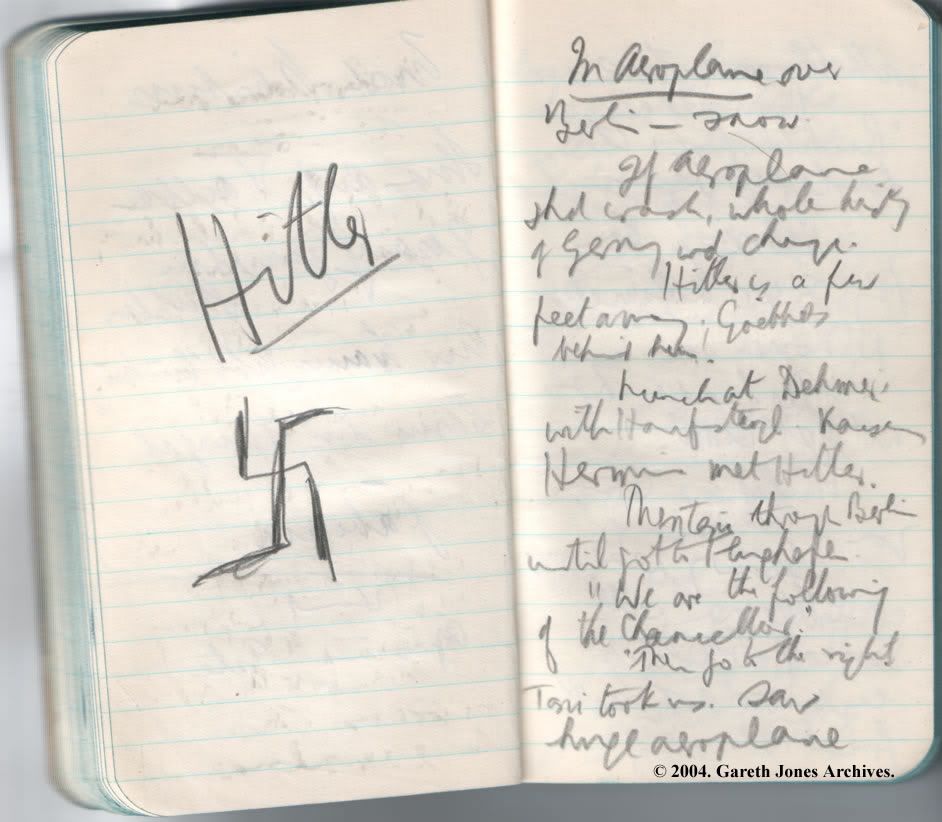 Hitler
In Aeroplane over
Berlin – snow.
If Aeroplane
shd crash, whole histy
of Germy wd change.
Hitler is a few
feet away. Goebbels
behind him!
Lunch at
with Hanfstaengl.
met Hitler.
Then taxi through Berlin
until got to Flughafen.
"We are the following
of the Chancellor."
"Then go to the right
Taxi took us. Saw
huge aeroplane
© 2004. Gareth Jones Archives.